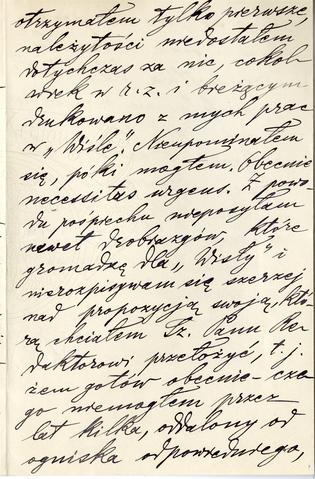 otrzymałem tylko pierwsze,
należytości niedostałem
dotychczas za nic, cokol-
wiek w r. z. i bieżącym
drukowano z mych prac
w „Wiśle". Nieupominałem
się, póki mogłem. Obecnie
necessitas urgens. Z powo-
du pośpiechu nieposyłam
nawet drobiazgów, które
gromadzę dla „Wisły" i
nierozpisywam się szerzej
nad propozycją swoją, któ-
rą chciałem Sz. Panu Re-
daktorowi przełożyć, t. j.
żem gotów obecnie – cze-
go niemogłem przez
lat kilka, oddalony od
ogniska odpowiedniego,